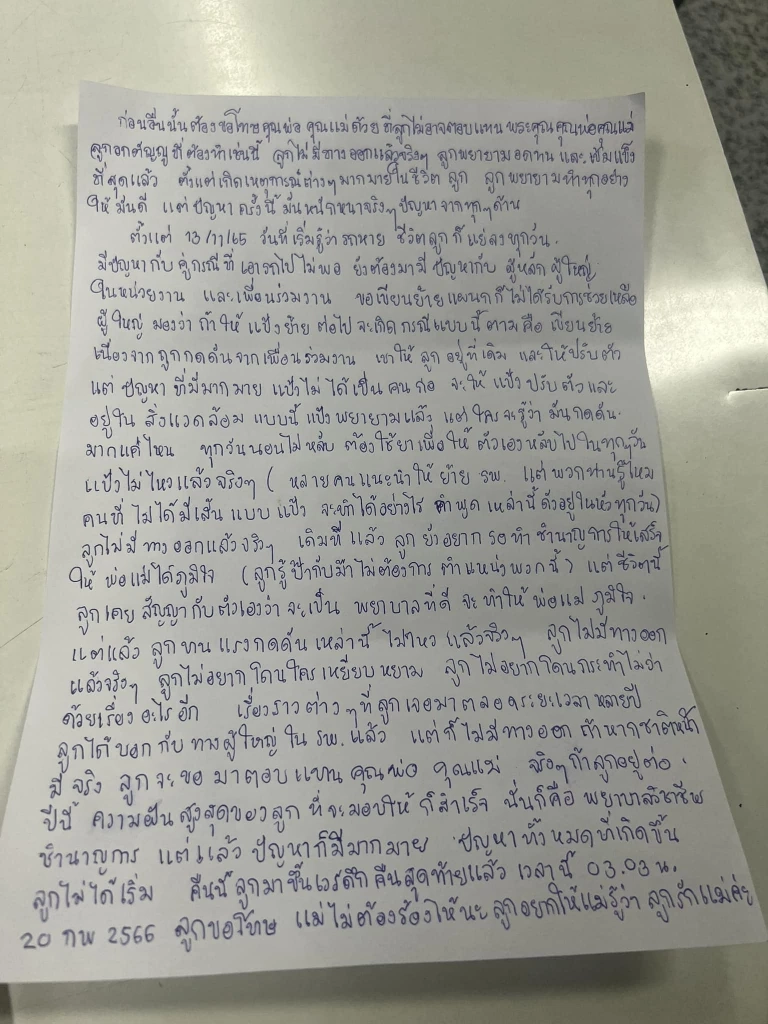 ก่อนอื่นนั้นต้องขอโทษคุณพ่อ คุณแม่ด้วย ที่ลูกไม่อาจตอบแทน พระคุณคุณพ่อคุณแม่
ลูกอกตัญญูที่ต้องทำเช่นนี้ ลูกไม่มีทางออกแล้วจริงๆ ลูกพยายามอดทน และเข้มแข็ง
ที่สุดแล้ว ตั้งแต่เกิดเหตุการณ์ต่างๆมากมายในชีวิต ลูก ลูกพยายามทำทุกอย่าง
ให้มันดี แต่ปัญหา ครั้งนี้ มันหนักหนาจริงๆ ปัญหาจากทุกๆด้าน
ตั้งแต่ 13/11/65 วันที่เริ่มรู้ว่ารถหาย ชีวิตลูกก็แย่ลงทุกวัน.
มีปัญหากับ คู่กรณีที่เอารถไปไม่พอ ยังต้องมามีปัญหากับ ผู้หลักผู้ใหญ่
ในหน่วยงาน และเพื่อนร่วมงาน ขอเขียนย้ายแผนกก็ไม่ได้รับการช่วยเหลือ
ผู้ใหญ่ มองว่า ถ้าให้ แป้งย้าย ต่อไปจะเกิดกรณีแบบนี้ตามคือ เขียนย้าย
เนื่องจากถูกกดดันจากเพื่อนร่วมงาน เขาให้ ลูก อยู่ที่เดิม และให้ปรับตัว
แต่ ปัญหา ที่มีมากมาย แป้งไม่ได้เป็น คนก่อ จะให้ แป้ง ปรับตัวและ
อยู่ใน สิ่งแวดล้อม แบบนี้ แป้ง พยายามแล้ว แต่ใครจะรู้ว่า มันกดดัน.
มากแค่ไหน ทุกวันนอนไม่หลับ ต้องใช้ยาเพื่อให้ ตัวเองหลับไปในทุกๆวัน
แป้งไม่ไหวแล้วจริงๆ ( หลายคนแนะนำให้ ย้าย รพ. แต่ พวกท่านรู้ไหม
คนที่ ไม่ได้มีเส้น แบบ แป้ง จะทำได้อย่างไร คำพูด เหล่านี้ ดังอยู่ในหัวทุกวัน)
ลูกไม่มีทางออกแล้วจริงๆ เดิมทีแล้ว ลูก ยังอยาก รอทำ ชำนาญการให้เสร็จ
ให้ พ่อแม่ได้ภูมิใจ (ลูกรู้ป๊ากับม๊าไม่ต้องการ ตำแหน่งพวกนี้) แต่ ชีวิตนี้
ลูกเคยสัญญากับตัวเองว่าจะเป็น พยาบาลที่ดี จะทำให้พ่อแม่ ภูมิใจ.
แต่แล้ว ลูกทนแรงกดดัน เหล่านี้ ไม่ไหว แล้วจริงๆ ลูกไม่มีทางออก
แล้วจริงๆ ลูกไม่อยากโดนใครเหยียบหยาม ลูกไม่อยากโดนกระทำไม่ว่า
ด้วยเรื่องอะไรอีก เรื่องราวต่างๆที่ลูกเจอมาตลอดระยะเวลา หลายปี
ลูกได้บอกกับทางผู้ใหญ่ใน รพ.แล้ว แต่ก็ไม่มีทางออก ถ้าหากชาติหน้า
มีจริง ลูกจะขอมาตอบแทนคุณพ่อ คุณแม่ จริงๆถ้าลูกอยู่ต่อ.
ปีนี้ ความฝันสูงสุดของลูก ที่จะมอบให้ ก็สำเร็จ นั่นก็คือ พยาบาลวิชาชีพ
ชำนาญการ แต่แล้ว ปัญหาก็มีมากมาย ปัญหาทั้งหมดที่เกิดขึ้น
ลูกไม่ได้เริ่ม คืนนี้ลูกมาขึ้นเวรดึกคืนสุดท้ายแล้ว เวลานี้ 03.03 น.
20 กพ 2566 ลูกขอโทษ แม่ไม่ต้องร้องไห้นะ ลูกอยากให้แม่รู้ว่า ลูกรักแม่ค่ะ